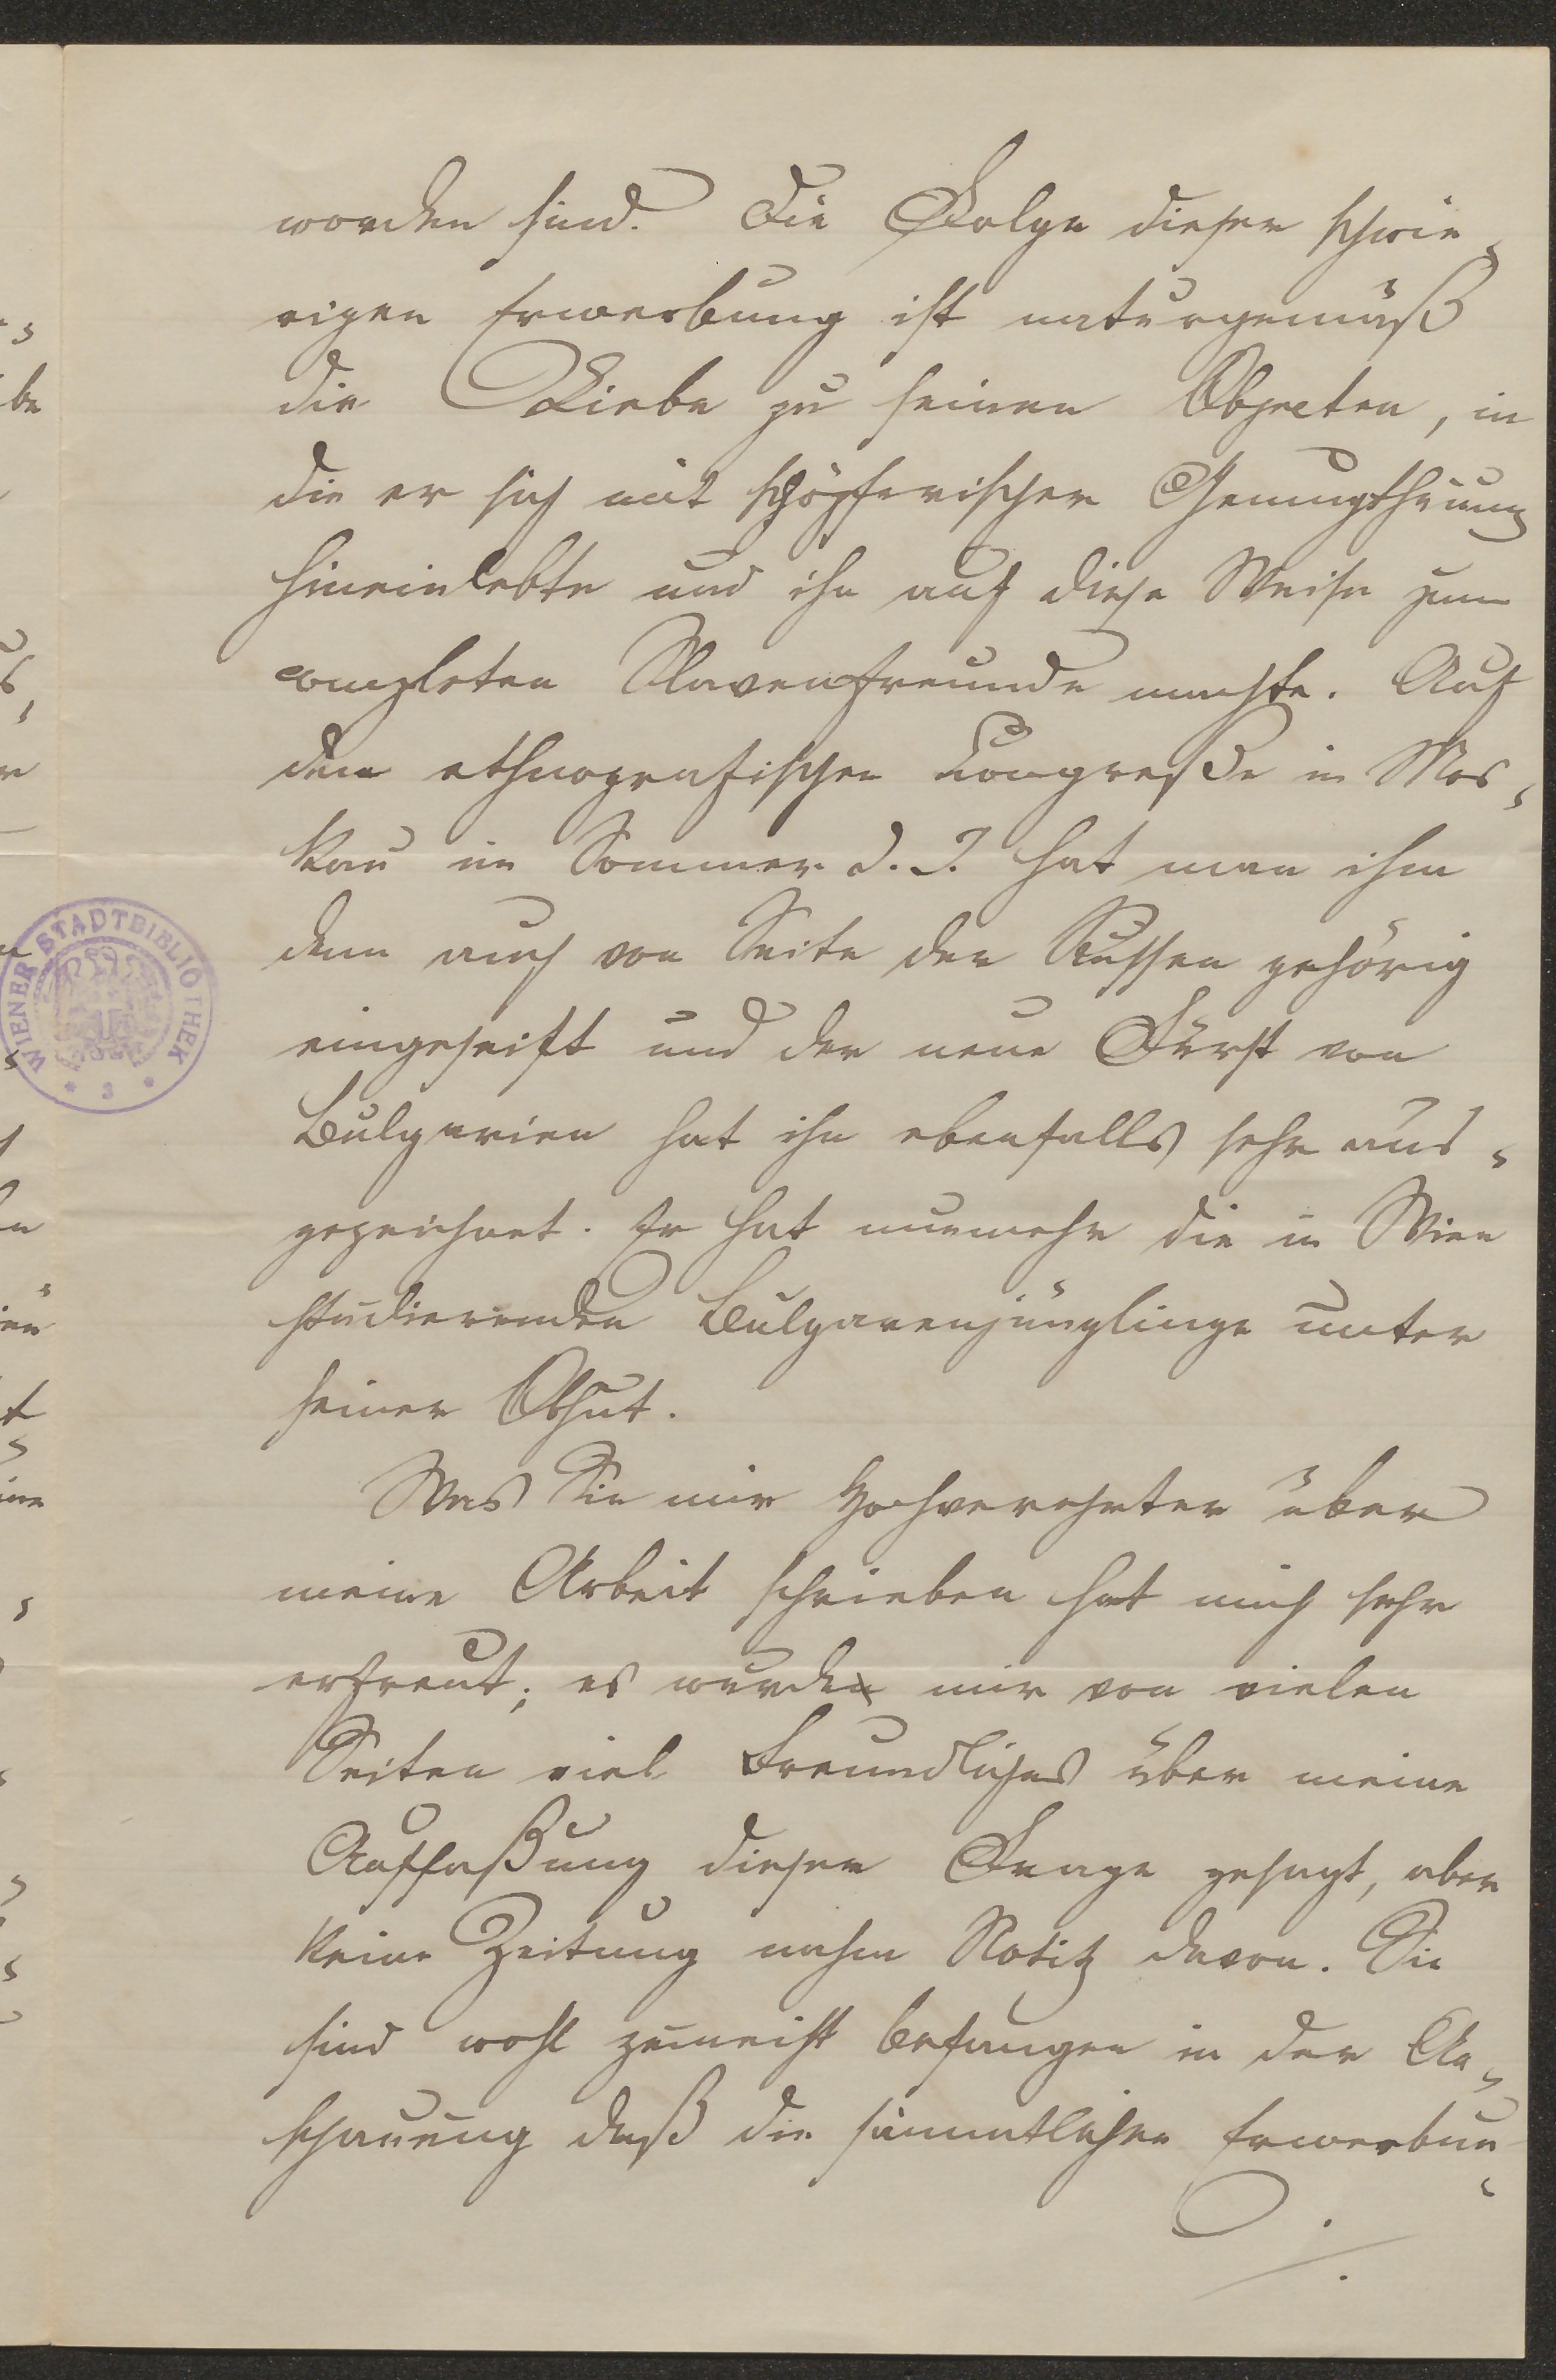 worden sind. Die Folge dieser schwie-
rigen Erwerbung ist naturgemäß
die Liebe zu seinen Objecten, in
die er sich mit schöpferischer Genugthuung
hineinlebte und ihn auf diese Weise zum
completen Slavenfreunde machte. Auf
dem ethnografischen Congreße in Mos-
kau im Sommer d. J. hat man ihm
denn auch von Seite der Russen gehörig
eingeseift und der neue Fürst von
Bulgarien hat ihn ebenfalls sehr aus-
gezeichnet. Er hat nunmehr die in Wien
studierenden Bulgarenjünglinge unter
seiner Obhut.
Was Sie mir Hochverehrter über
meine Arbeit schrieben hat mich sehr
erfreut; es wurde mir von vielen
Seiten viel Freundliches über meine
Auffaßung dieser Frage gesagt, aber
keine Zeitung nahm Notitz davon. Sie
sind wohl zumeist befangen in der An-
schauung daß die sämmtlichen Erwerbun-
./.
WIENER STADTBIBLIOTHEK
* 3 *